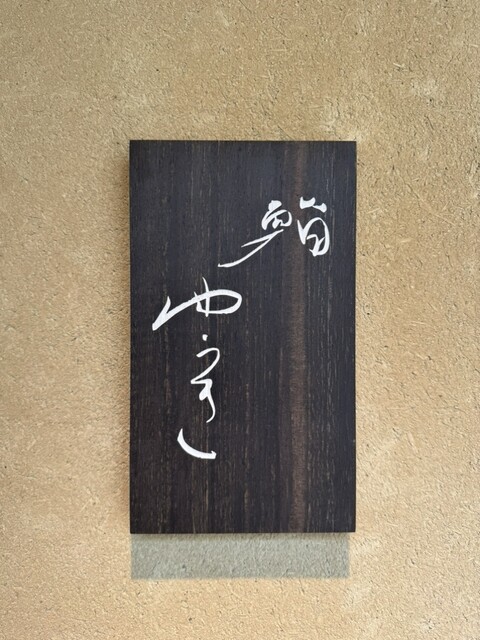 鮨
ゆうき